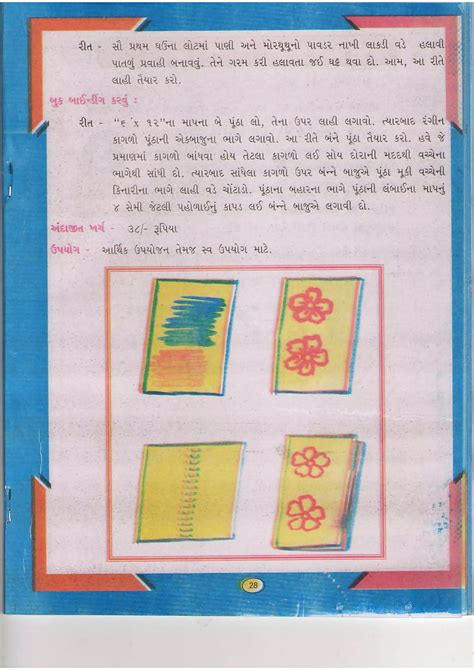 રીત - સૌ પ્રથમ ઘઉંના લોટમાં પાણી અને મોરથૂથૂનો પાવડર નાખી લાકડી વડે હલાવી
પાતળું પ્રવાહી બનાવવું. તેને ગરમ કરી હલાવતા જઈ ઘટ્ટ થવા દો. આમ, આ રીતે
લાહી તૈયાર કરો.
બુક બાઈન્ડીંગ કરવું :
રીત - "૬ x ૧૨"ના માપના બે પૂંઠા લો, તેના ઉપર લાહી લગાવો. ત્યારબાદ રંગીન
કાગળો પૂંઠાની એકબાજુના ભાગે લગાવો. આ રીતે બંને પૂંઠા તૈયાર કરો. હવે જે
પ્રમાણમાં કાગળો બાંધવા હોય તેટલા કાગળો લઈ સોય દોરાની મદદથી વચ્ચેના
ભાગેથી સાંધી દો. ત્યારબાદ સાંધેલા કાગળો ઉપર બંન્ને બાજુએ પૂંઠા મૂકી વચ્ચેની
કિનારીના ભાગે લાહી વડે ચોંટાડો. પૂંઠાના બહારના ભાગે પૂંઠાની લંબાઈના માપનું
૪ સેમી જેટલી પહોળાઈનું કાપડ લઈ બંન્ને બાજુએ લગાવી દો.
અંદાજીત ખર્ચ - ૩૮/- રૂપિયા
ઉપયોગ - આર્થિક ઉપયોજન તેમજ સ્વ ઉપયોગ માટે.
28